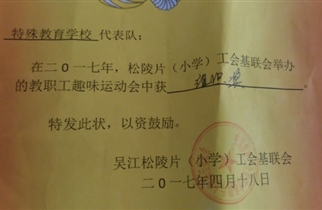 特殊教育学校 代表队：
在二0一七年，松陵片（小学）工会基联会举办
的教职工趣味运动会中获 奖。
特发此状，以资鼓励。
吴江松陵片（小学）工会基联会
二0一七年四月十八日